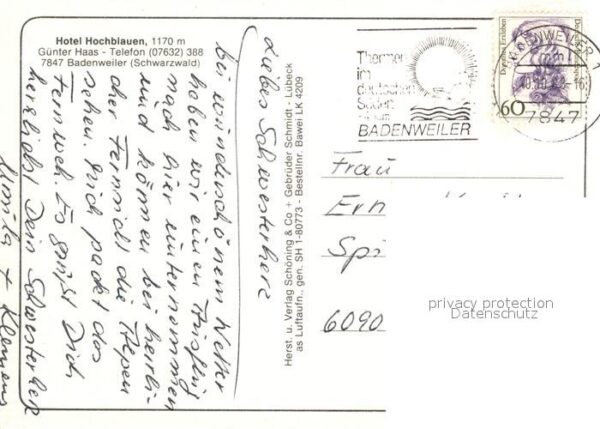 Hotel Hochblauen, 1170 m
Günter Haas - Telefon (07632) 388
7847 Badenweiler (Schwarzwald)
Liebes Schwesterherz
bei wunderschönem Wetter
haben wir einen Ausflug
nach hier unternommen
und können bei herrli-
cher Fernsicht die Alpen
sehen. Mich packt das
Fernweh. Es grüßt Dich
herzlichst Dein Schwesterherz
+ Klemens
Herst. u. Verlag Schöning & Co + Gebrüder Schmidt - Lübeck
as Luftaufn., gen. SH 1-80773 - Bestellnr. Bawei LK 4209
Thermen
im
deutschen
Süden
BADENWEILER
BADENWEILER 1
7847
60
Frau
6090
privacy protection
Datenschutz